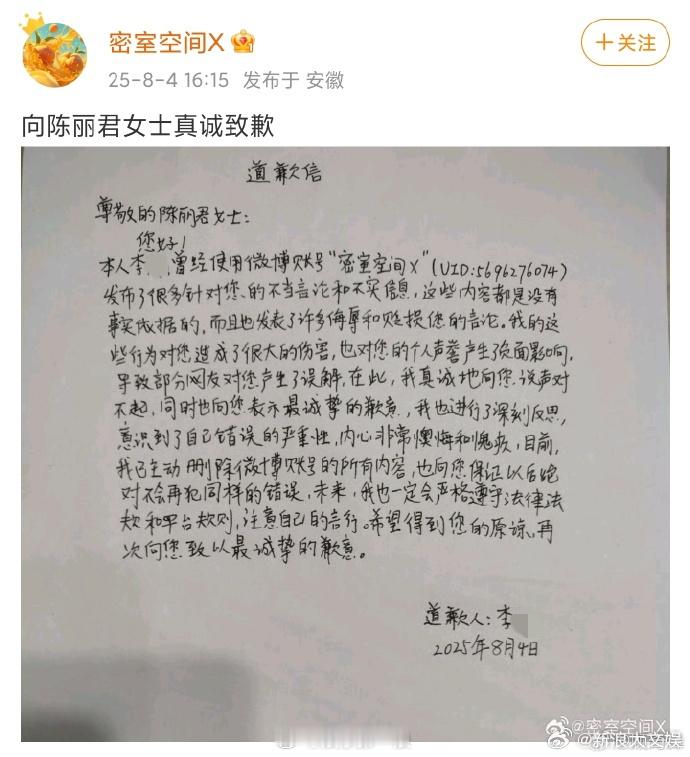 密室空间X
+关注
25-8-4 16:15 发布于 安徽
向陈丽君女士真诚致歉
道歉信
尊敬的陈丽君女士:
您好!
本人李 曾经使用微博账号"密室空间X"(UID:5696276074)
发布了很多针对您的不当言论和不实信息,这些内容都是没有
事实依据的,而且也发表了许多侮辱和贬损您的言论。我的这
些行为对您造成了很大的伤害,也对您的个人声誉产生了负面影响,
导致部分网友对您产生了误解,在此,我真诚地向您说声对
不起,同时也向您表示最诚挚的歉意,我也进行了深刻反思,
意识到了自己错误的严重性,内心非常懊悔和愧疚,目前,
我已主动删除微博账号的所有内容,也向您保证以后绝
对不会再犯同样的错误,未来,我也一定会严格遵守法律法
规和平台规则,注意自己的言行。希望得到您的原谅,再
次向您致以最诚挚的歉意。
道歉人:李
2025年8月4日
@密室空间X
@新浪大文娱